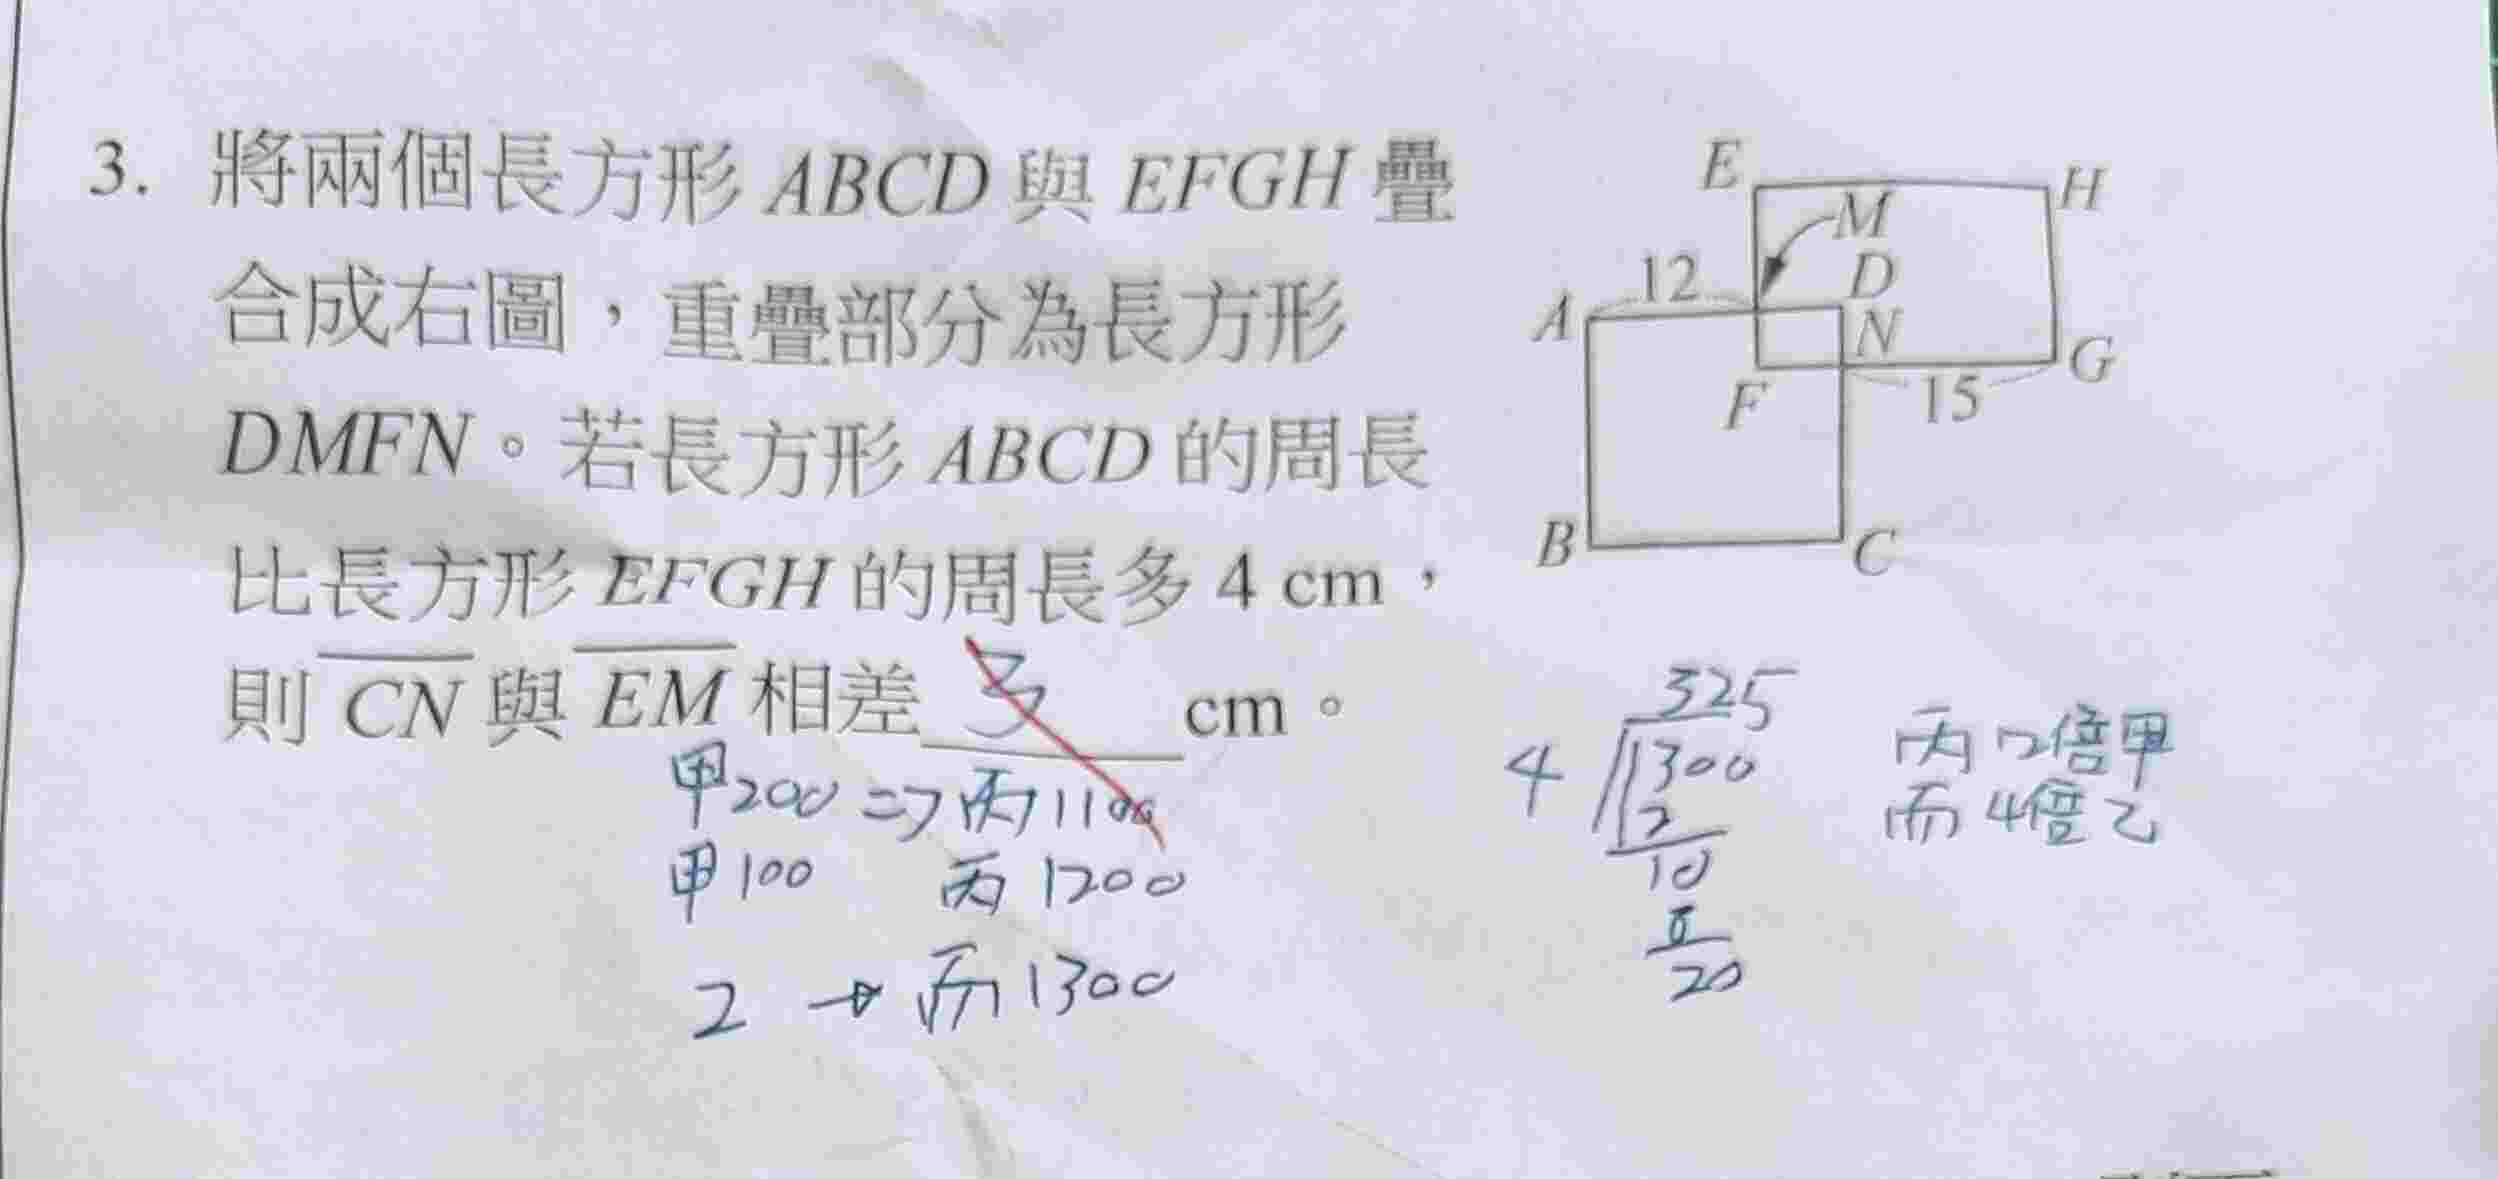 3. 將兩個長方形 ABCD 與 EFGH 疊
合成右圖，重疊部分為長方形
DMFN。若長方形 ABCD 的周長
比長方形 EFGH 的周長多 4 cm，
則 CN 與 EM 相差 3 cm。
E
H
M
12
D
A
N
G
F
15
B
C
甲200 => 丙1100
甲100 丙1200
2 → 丙1300
325
4 1300
12
10
8
20
丙 2倍甲
丙 4倍乙